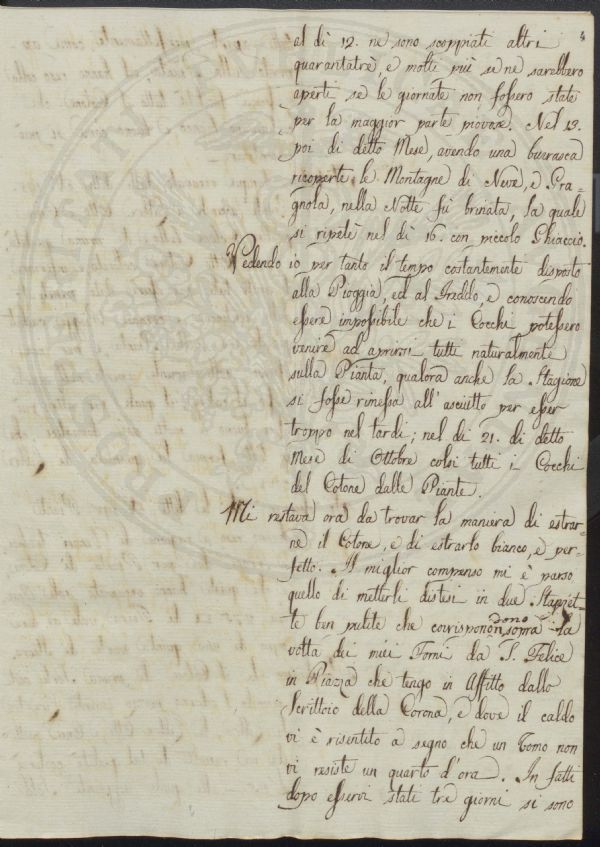 4
al dì 12. ne sono scoppiati altri
quarantatrè e molti più se ne sarebbero
aperti se le giornate non fossero state
per la maggior parte piovose. Nel 13.
poi di detto Mese, avendo una buerasca
ricoperte le Montagne di Neve, e Gra-
gnola, nella Notte fù brinata, la quale
si ripetè nel dì 16. con piccolo Ghiaccio.
Vedendo io per tanto il tempo costantemente disposto
alla Pioggia, ed al Freddo, e conoscendo
essere impossibile che i Cocchi potessero
venire ad aprirsi tutti naturalmente
sulla Pianta, qualora anche la Stagione
si fosse rimessa all' asciutto per esser
troppo nel tardi; nel dì 21. di detto
Mese di Ottobre colsi tutti i Cocchi
del Cotone dalle Piante.
Mi restava ora da trovar la maniera di estrar-
ne il Cotone, e di estrarlo bianco, e per-
fetto. Il miglior compenso mi è parso
quello di metterli distesi in due Stanzet-
te ben pulite che corrispondono sopra la
volta dei miei Forni da S. Felice
in Piazza che tengo in Affitto dallo
Scrittoio della Corona, e dove il caldo
vi è risentito a segno che un Uomo non
vi resiste un quarto d'ora. In fatti
dopo esservi stati tre giorni si sono